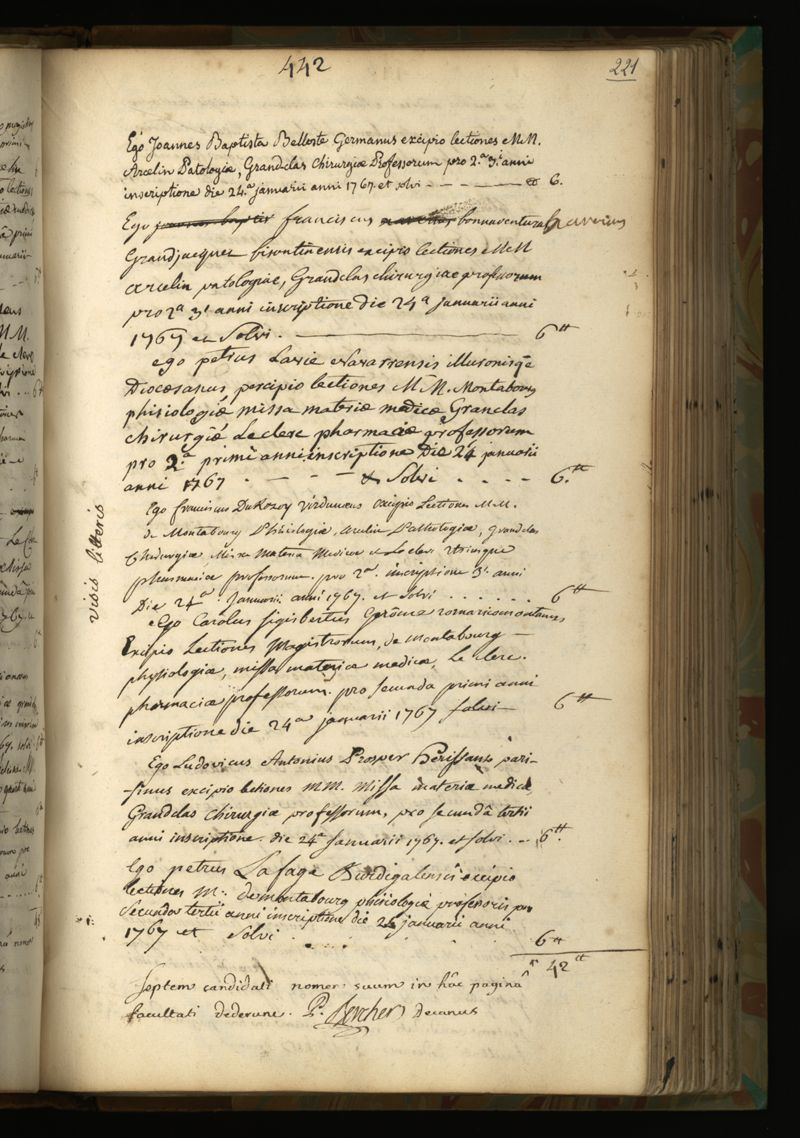 442
221
Ego Joannes Baptista Belloste Germanus excipio lectiones M.M.
Arcelin Patologiæ, Grandclas chirurgiæ Professorum pro 2.a 3.i anni
inscriptione die 24.a januarii anni 1767. et solvi 6.
Ego joannes baptis franciscus bonnaventura
Grandjacquet bisontinensis excipio lectiones M M
arcelin patologiae, Grandclas chirurgiae professorum
pro 2a 3i anni inscriptione die 24a januarii anni
1767 et Solvi. 6tt
ego petrus Lavie Navarrensis illuronisqe
Diocœsanus percipio lectiones M M. Montabourg
phisiologiæ, missa materiæ medicæ Granclas
chirurgiæ Leclerc pharmaciæ professorum
pro 2.a primi anni inscriptione Die 24 januarii
anni 1767 & Solvi 6.tt
Ego franciscus DuRozoy Virdunæus Excipio Lectiones M.M.
de Montabourg Phisiologiæ, arcelin Pathologiæ, grandclas
Chirurgiæ, Missa Materia Medicæ et Le clerc utriusque
pharmaciæ professorum. pro 2a. inscriptione 3i. anni
Die 24a. Januarii anni 1767. et solvi 6tt
visis litteris
Ego Carolus sigisbertus Gerôme romaricomontanus
Excipio Lectiones Magistrorum, de montabourg
physiologiæ, missa materiæ medicæ, Le clerc.
pharmaciæ professorum. pro secunda primi anni
inscriptione die 24a januarii 1767 solvi 6tt
Ego Ludovicus Antonius Prosper hérissant pari-
-sinus excipio lectiones M.M. Missa materiæ medicæ
Grandclas chirurgiæ professorum, pro secundâ tertii
anni inscriptione. die 24a Januarii 1767. et solvi. 6tt.
Ego petrus Lafage Burdigalensis excipio
lectiones M.i demontabourg phisiologiæ professoris pro
secunda tertii anni inscriptione die 24 januarii anni
1767 et Solvi 6tt
42tt
Septem candidati nomen suum in hâc paginâ
facultati dederunt. P. Bercher Decanus